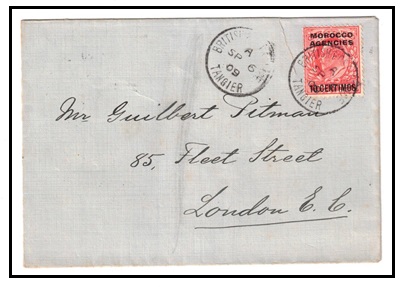 MOROCCO
AGENCIES
10 CENTIMOS
BRITISH
A
SP 6
09
TANGIER
BRITISH
A
TANGIER
Mr Guilbert Pitman
85, Fleet Street
London E. C.